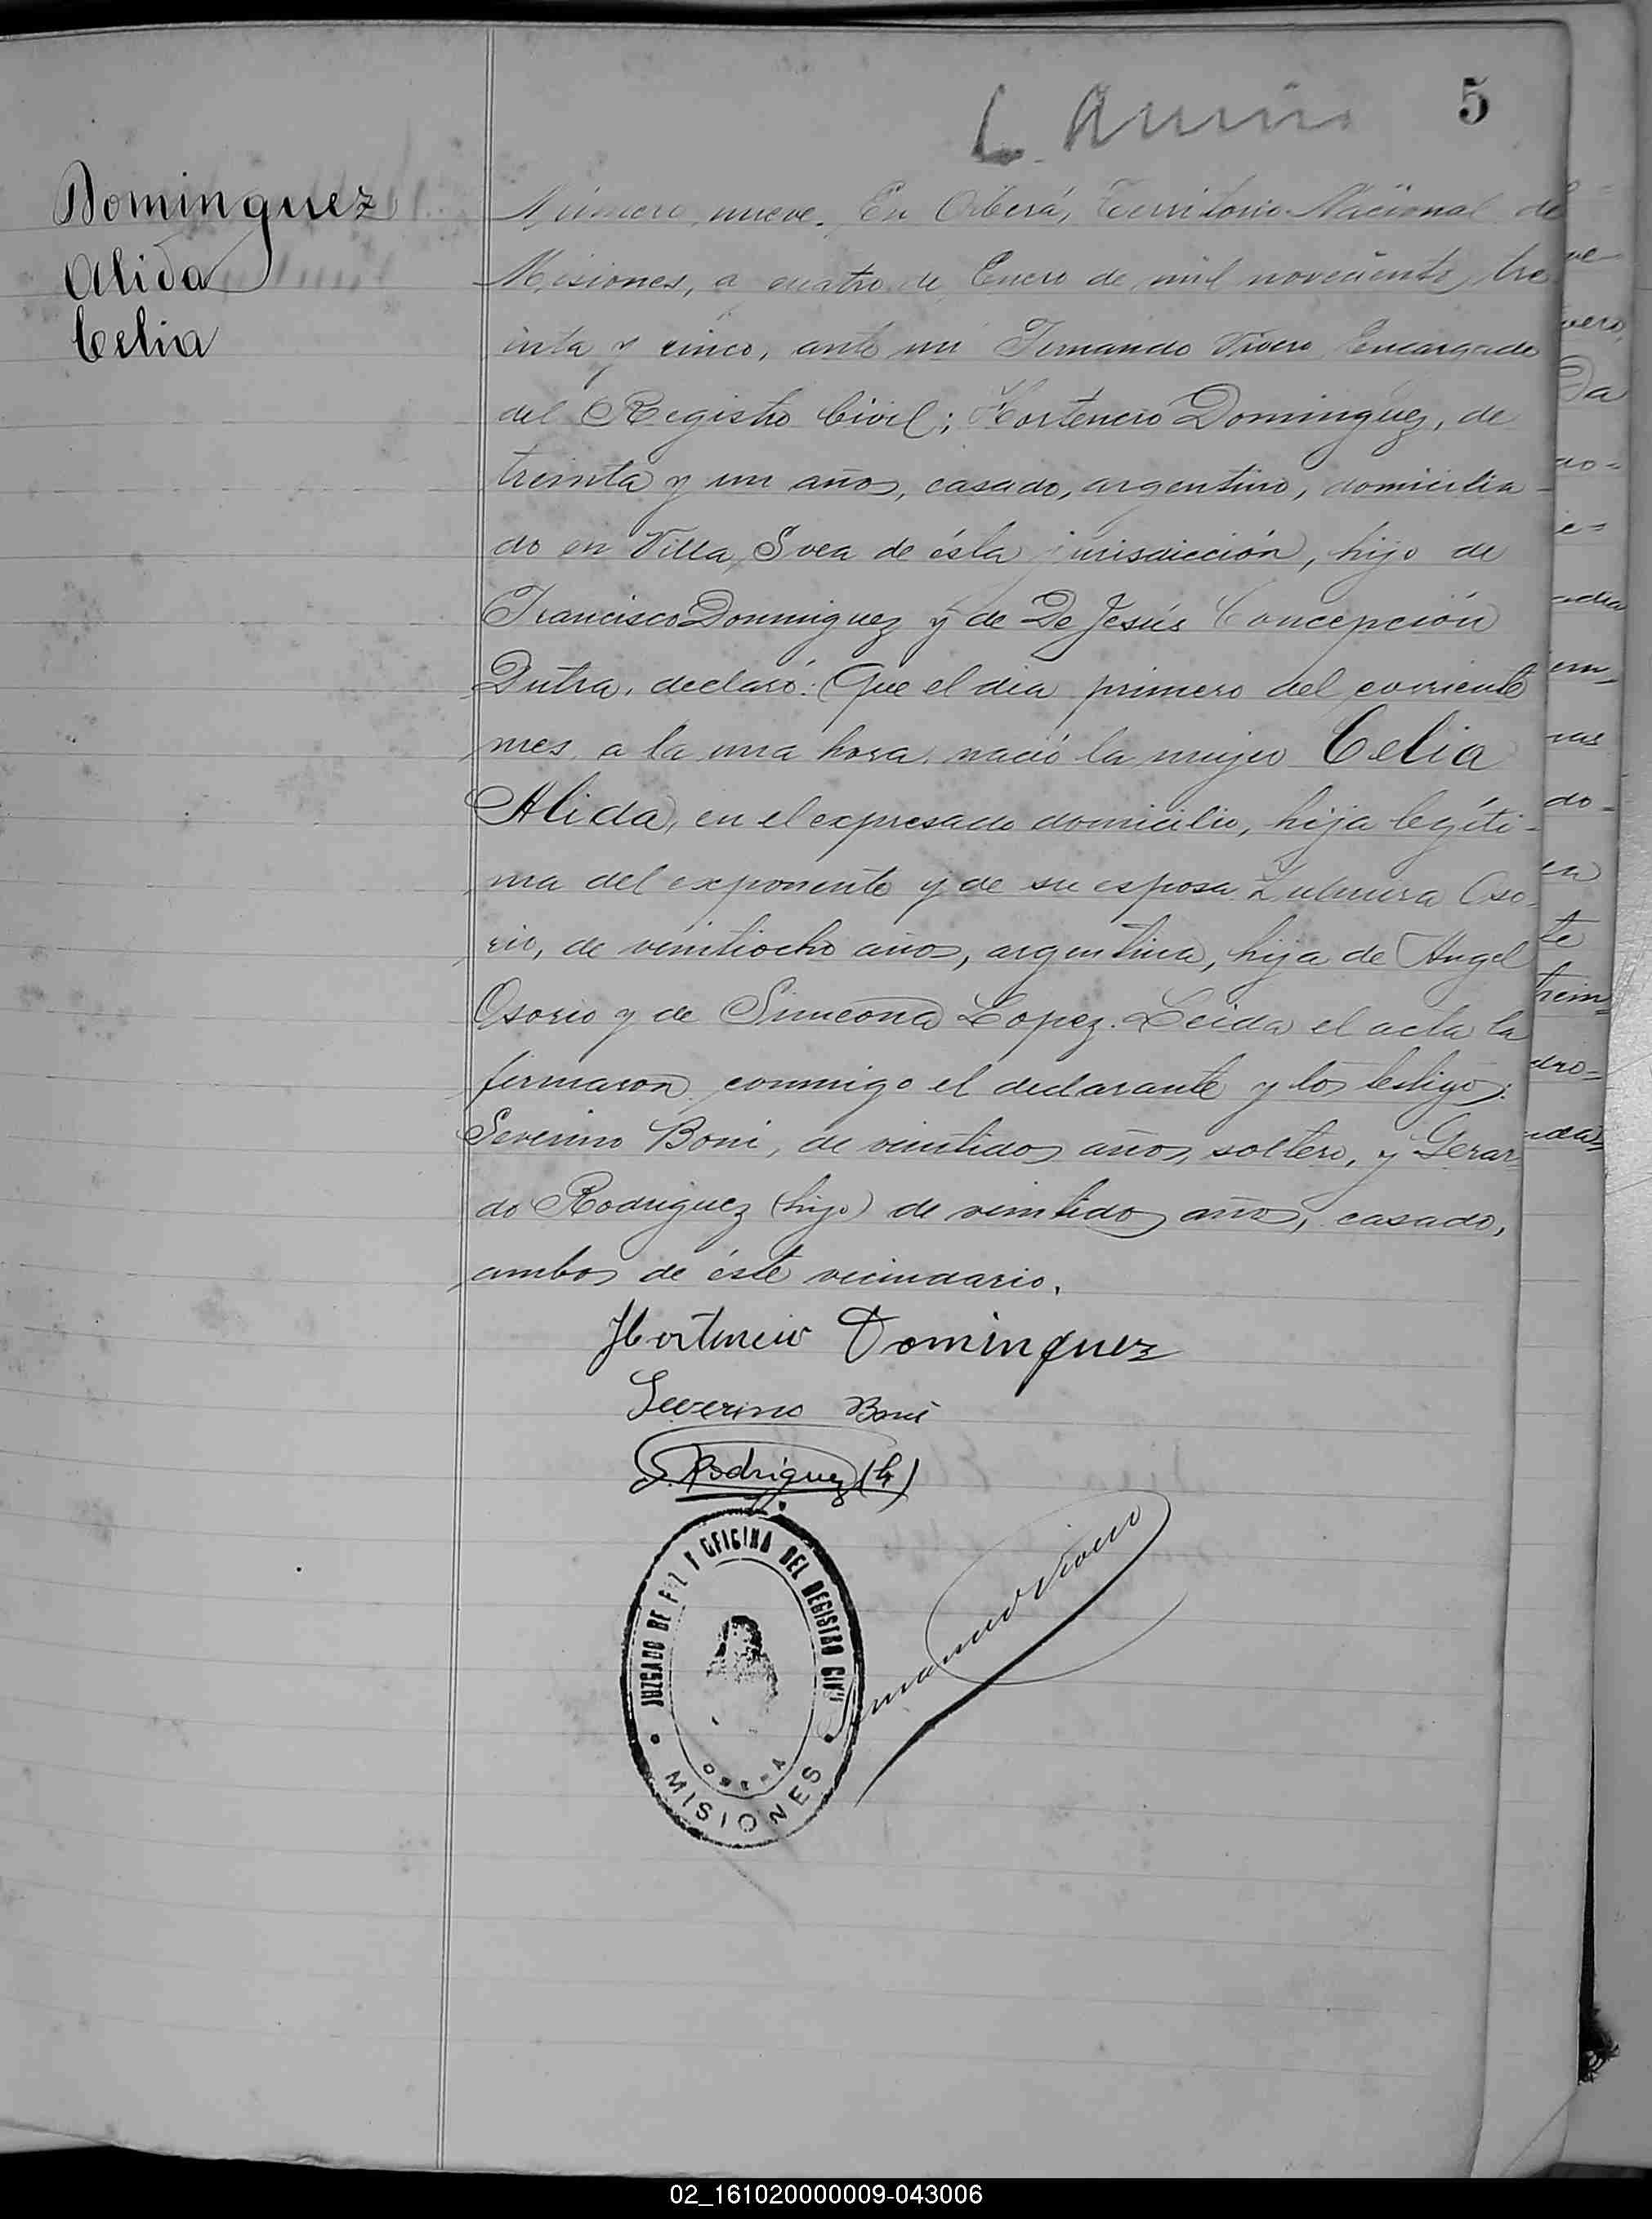 5
Dominguez
Alida
Celia
Número nueve. En Oberá, Territorio Nacional de
Misiones, a cuatro de Enero de mil novecientos tre
inta y cinco, ante mi Fernando Vivero Encargado
del Registro Civil; Hortencio Dominguez, de
treinta y un años, casado, argentino, domicilia-
do en Villa Svea de ésta jurisdicción, hijo de
Francisco Dominguez y de De Jesús Concepción
Dutra, declaró: Que el dia primero del corriente
mes, a la una hora, nació la mujer Celia
Alida, en el expresado domicilio, hija legíti-
ma del exponente y de su esposa Zulmira Oso-
rio, de veintiocho años, argentina, hija de Angel
Osorio y de Simeona Lopez. Leida el acta la
firmaron conmigo el declarante y los testigos:
Severino Boni, de veintidos años, soltero, y Gerar-
do Rodriguez (hijo) de veintidos años, casado,
ambos de éste vecindario.
Hortencio Dominguez
Severino Boni
G. Rodriguez (h)
JUZGADO DE PAZ Y OFICINA DEL REGISTRO CIVIL
OBERA
MISIONES
Fernando Vivero
02_161020000009-043006